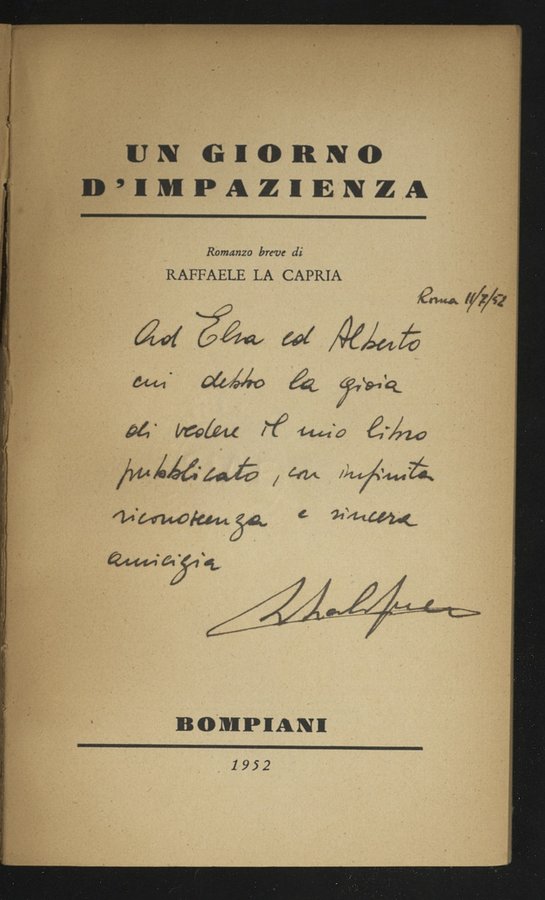 UN GIORNO
D'IMPAZIENZA
Romanzo breve di
RAFFAELE LA CAPRIA
Roma 11/7/52
Ad Elsa ed Alberto
cui debbo la gioia
di vedere il mio libro
pubblicato, con infinita
riconoscenza e sincera
amicizia
BOMPIANI
1952